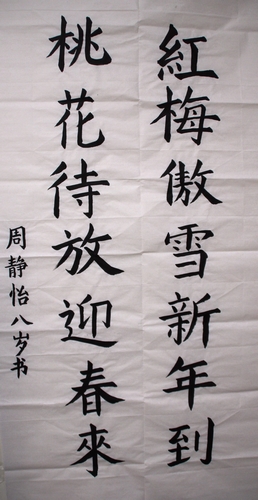 紅梅傲雪新年到
桃花待放迎春來
周静怡八岁书